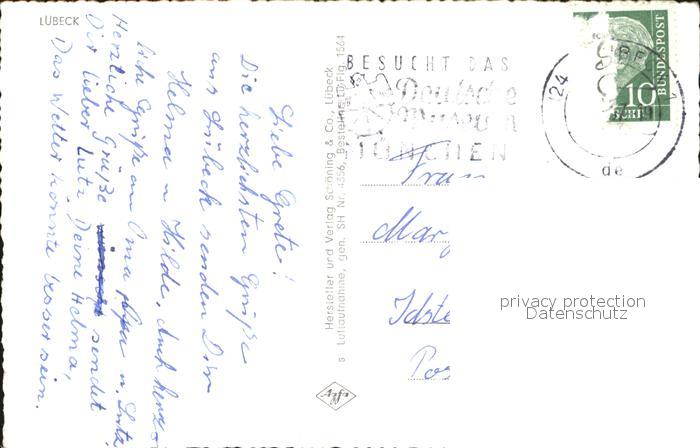 LÜBECK
Liebe Grete!
Die herzlichsten Grüße
aus Lübeck senden Dir
Helma u Hilde, Auch herz-
liche Grüße an Oma Papa u. Lutz
Herzliche Grüße sendet
Dir lieber Lutz Deine Helma,
Das Wetter könnte besser sein.
Hersteller und Verlag Schöning & Co., Lübeck
s Luftaufnahme, gen. SH Nr. 4356, Bestellnr. L-Flg. 1564
Agfa
BESUCHT DAS
Deutsche
Museum
MÜNCHEN
24
de
10
BUNDESPOST
Frau
Marg
Idste
Pos
privacy protection
Datenschutz